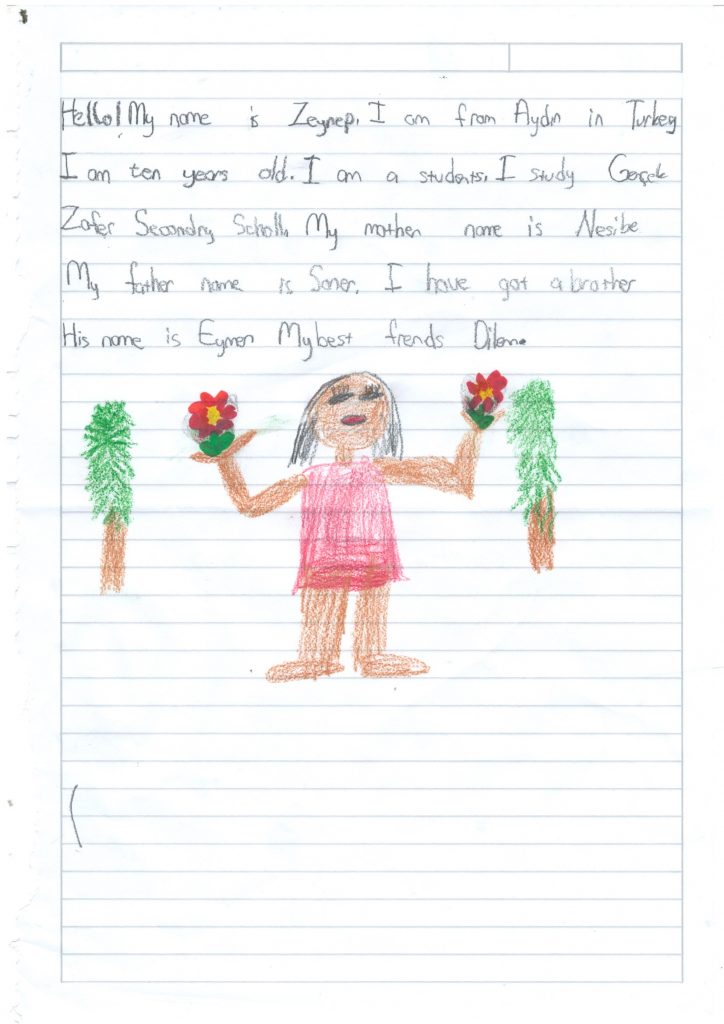 Hello! My name is Zeynep. I am from Aydın in Turkey
I am ten years old. I am a students. I study Gerçek
Zafer Secondry Scholl. My mother name is Nesibe
My father name is Soner. I have got a brother
His name is Eymen My best frends Dilem.